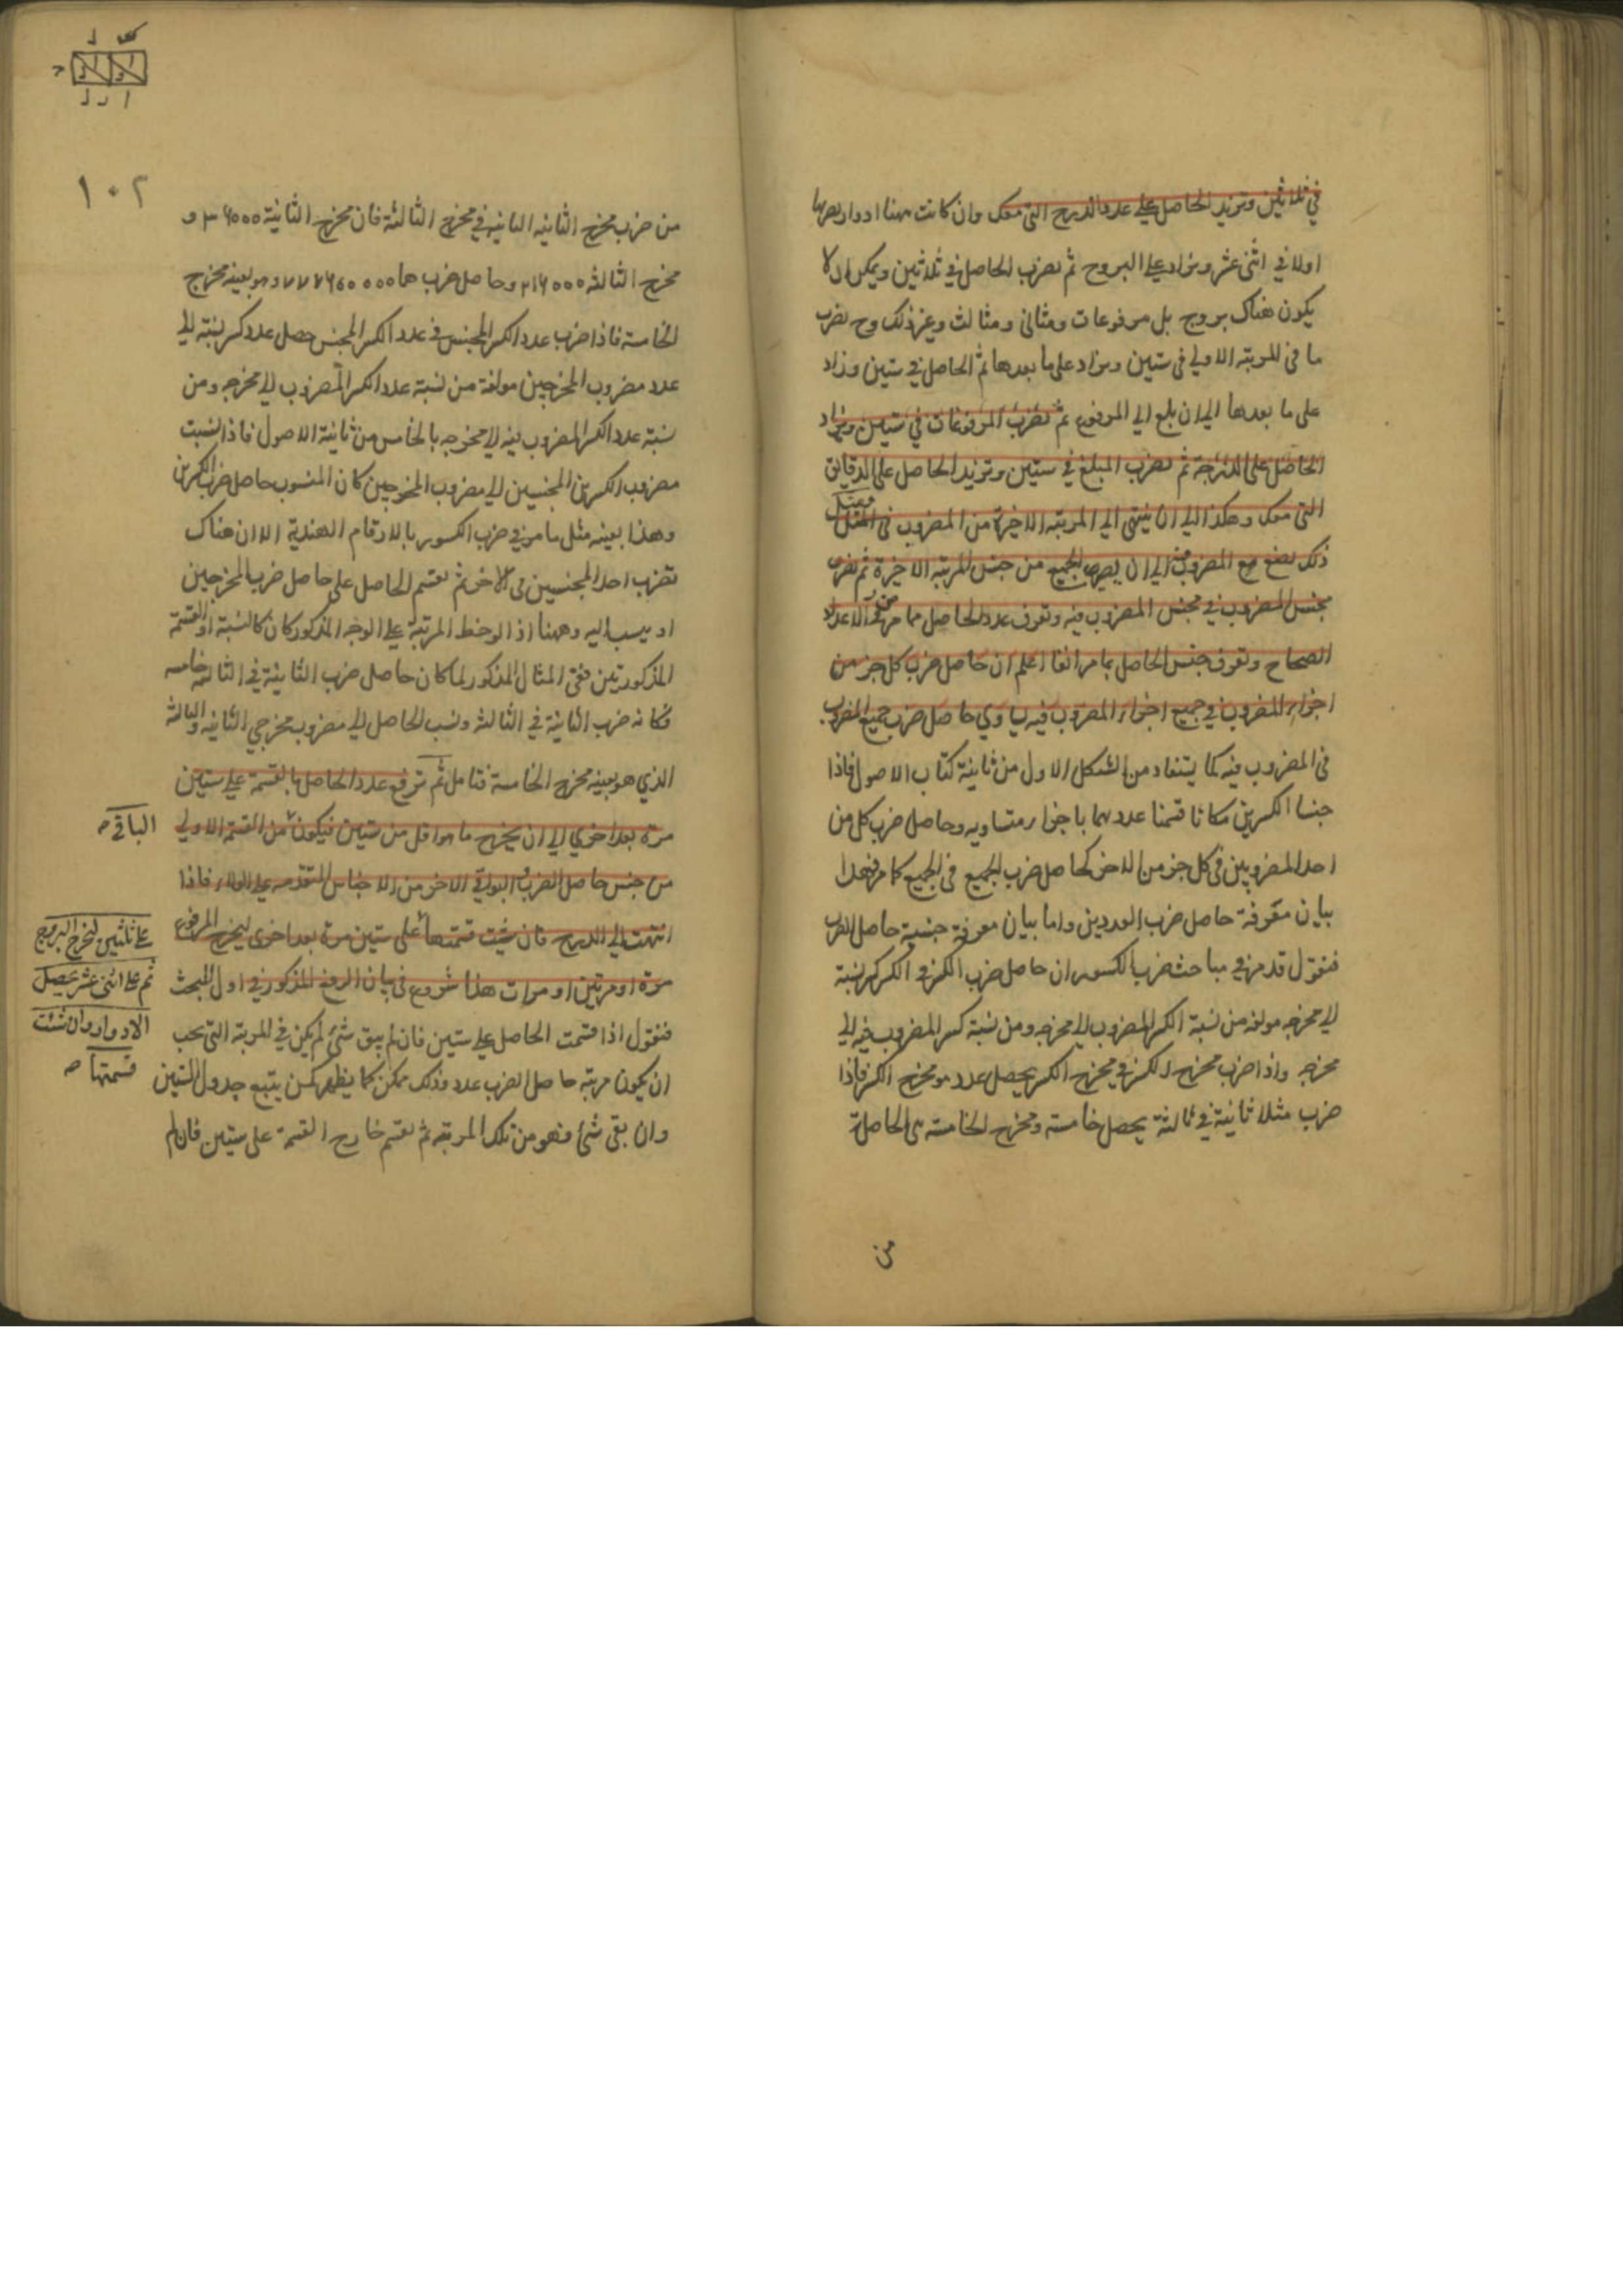 في ثلاثين وتزيد الحاصل على عدد الدرج التي معك وان كانت ههنا ادوار يضربها
اولا في اثنى عشر ويزاد على البروج ثم يضرب الحاصل في ثلاثين ويمكن ان لا
يكون هناك بروج بل مرفوعات ومثانى ومثالث وغير ذلك وح يضرب
ما في المرتبة الاولي في ستين ويزاد على ما بعدها ثم الحاصل في ستين وزاد
على ما بعدها الي ان بلغ الي المرفوع ثم تضرب المرفوعات في ستين ويزاد
الحاصل على الدرجة ثم تضرب المبلغ في ستين وتزيد الحاصل على الدقايق
التي معك وهكذا الي ان ينتهي الي المرتبة الاخيرة من المضروب في المثل
ذلك تصنع مع المضروب فيه الي ان يصير الجميع من جنس المرتبة الاخيرة ثم تضرب
مجنس المضروب في مجنس المضروب فيه وتعرف عدد الحاصل مما مر في ضرب الاعداد
الصحاح وتعرف جنس الحاصل بما مر انفا اعلم ان حاصل ضرب كل جزء من
اجزاء المضروب في جميع اجزاء المضروب فيه يساوي حاصل ضرب جميع المضروب
في المضروب فيه كما يستفاد من الشكل الاول من ثانية كتاب الاصول فاذا
جنسا الكسرين فكانا قسمنا عددهما باجزاء متساويه وحاصل ضرب كل من
احد المضروبين في كل جزء من الاخر كحاصل ضرب الجميع في الجميع كما مر فهذا
بيان معرفة حاصل ضرب العددين واما بيان معرفة جنسية حاصل الضرب
فنقول قد مر في مباحث ضرب الكسور ان حاصل ضرب الكسر في الكسر كسر نسبة
الي مخرجه مولفه من نسبة الكسر المضروب الي مخرجه ومن نسبة كسر المضروب فيه الي
مخرجه واذا ضرب مخرج الكسر في مخرج الكسر يحصل عدد هو مخرج الكسر فاذا
ضرب مثلا ثانية في ثالثة يحصل خامسة ومخرج الخامسة هي الحاصلة
من
١٠٢
من ضرب مخرج الثانيه الثانيه في مخرج الثالثة فان مخرج الثانية ٣٦٠٠٠ و
مخرج الثالثه ٢١٦٠٠٠ وحاصل ضربهما ٧٧٧٦٠٠٠٠٠ وهو بعينه مخرج
الخامسة فاذا ضرب عدد الكسر المجنس في عدد الكسر المجنس حصل عدد كسر نسبته الي
عدد مضروب المخرجين مولفة من نسبة عدد الكسر المضروب الي مخرجه ومن
نسبة عدد الكسر المضروب فيه الي مخرجه بالخامس من ثانية الاصول فاذا نسبت
مضروب الكسرين المجنسين الي مضروب المخرجين كان المنسوب حاصل ضرب الكسرين
وهذا بعينه مثل ما مر في ضرب الكسور بالارقام الهندية الا ان هناك
تضرب احد المجنسين في الاخر ثم تقسم الحاصل على حاصل ضرب المخرجين
او ينسب اليه وههنا اذا لوحظ المرتبة على الوجه المذكور كان كالنسبة او القسمة
المذكورتين ففي المثال المذكور لما كان حاصل ضرب الثانية في الثالثة خامسه
فكانه ضرب الثانية في الثالثه ونسب الحاصل الي مضروب مخرجي الثانيه والثالثه
الذي هو بعينه مخرج الخامسة فتامل ثم ترفع عدد الحاصل بالقسمة على ستين
مرة بعد اخري الي ان يخرج ما هو اقل من ستين فيكون من القسمة الاولي
الباقي صـ
من جنس حاصل الضرب والبواقي الاخر من الاجناس المتقدمه على الولاء فاذا
انتهت الي الدرج فان شئت قسمتها على ستين مرة بعد اخرى ليخرج المرفوع
على ثلثين لتخرج البروج
ثم على اثنى عشر يحصل
الادوار وان شئت
قسمتها صـ
مرة او مرتين او مرات هذا شروع في بيان الرفع المذكور في اول المبحث
فنقول اذا قسمت الحاصل على ستين فان لم يبق شئ لم يكن في المرتبة التي يجب
ان يكون مرتبة حاصل الضرب عدد وذلك ممكن كما يظهر لمن يتتبع جدول الستين
وان بقى شئ فهو من تلك المرتبة ثم تقسم خارج القسمة على ستين فان لم